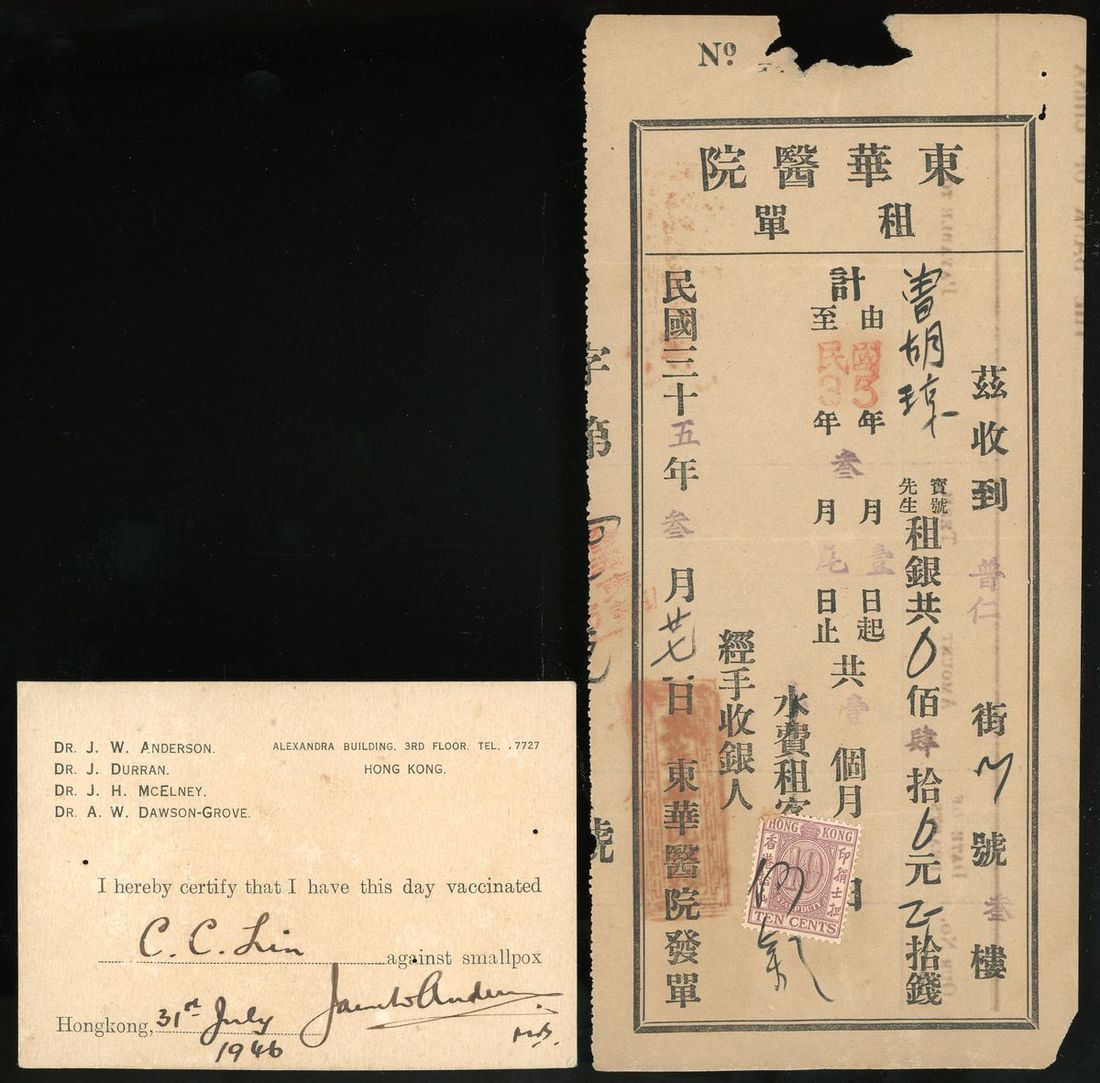 DR. J. W. ANDERSON.
DR. J. DURRAN.
DR. J. H. MCELNEY.
DR. A. W. DAWSON-GROVE.
ALEXANDRA BUILDING, 3RD FLOOR. TEL. 7727
HONG KONG.
I hereby certify that I have this day vaccinated
C. C. Lin
against smallpox
Hongkong, 31st July
1946
M.B.
No.
東華醫院
租單
茲收到普仁街號叁樓
曾胡
寶號
先生
租銀共0佰肆拾6元拾錢
計
由國5年月壹日起
至民3年月尾日止
叁
共壹個月
水費租客
經手收銀人
民國三十五年叁月廿七日東華醫院發單
字第
號
HONG KONG
香港
印捐士担
10
STAMP DUTY
TEN CENTS